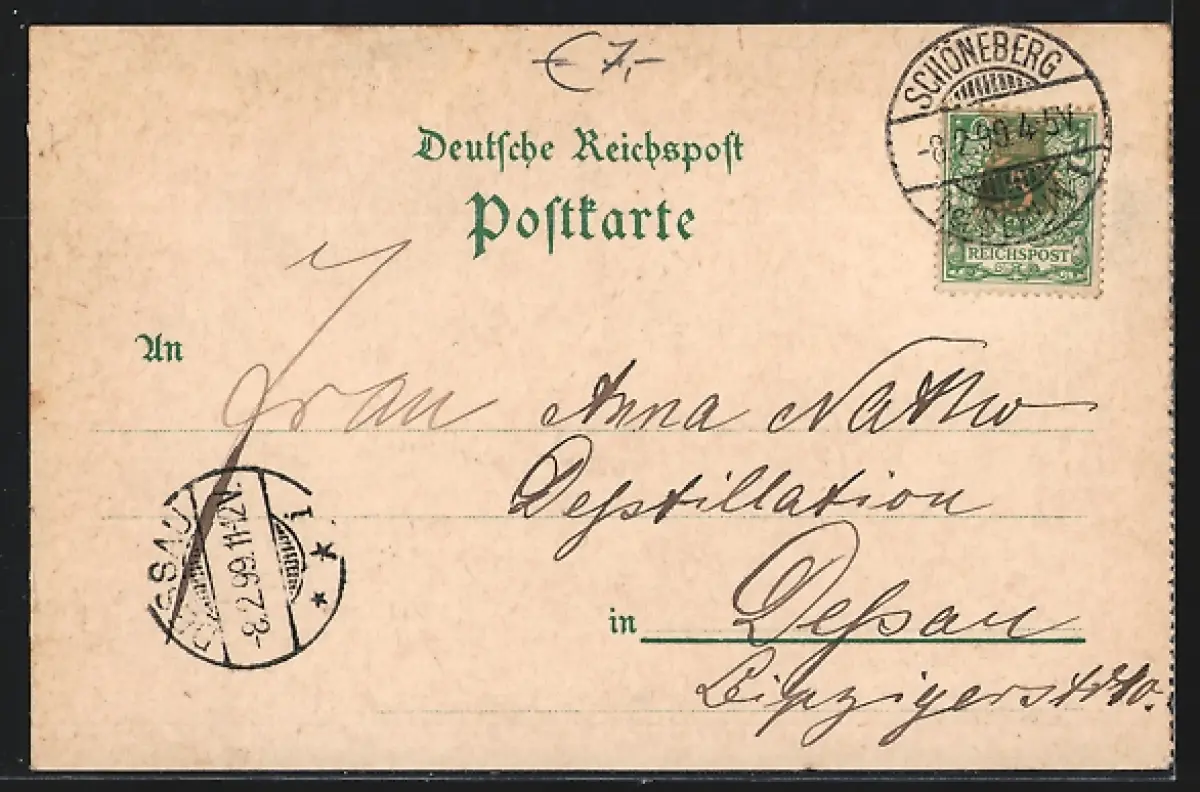 € 7,-
Deutsche Reichspost
Postkarte
SCHÖNEBERG
-8.2.99.4-5V.
BERLIN
REICHSPOST
An
Frau Anna Natho
Deßtillation
in Deßau
Leipzigerstr
DESSAU
-8.2.99.11-12V.
1